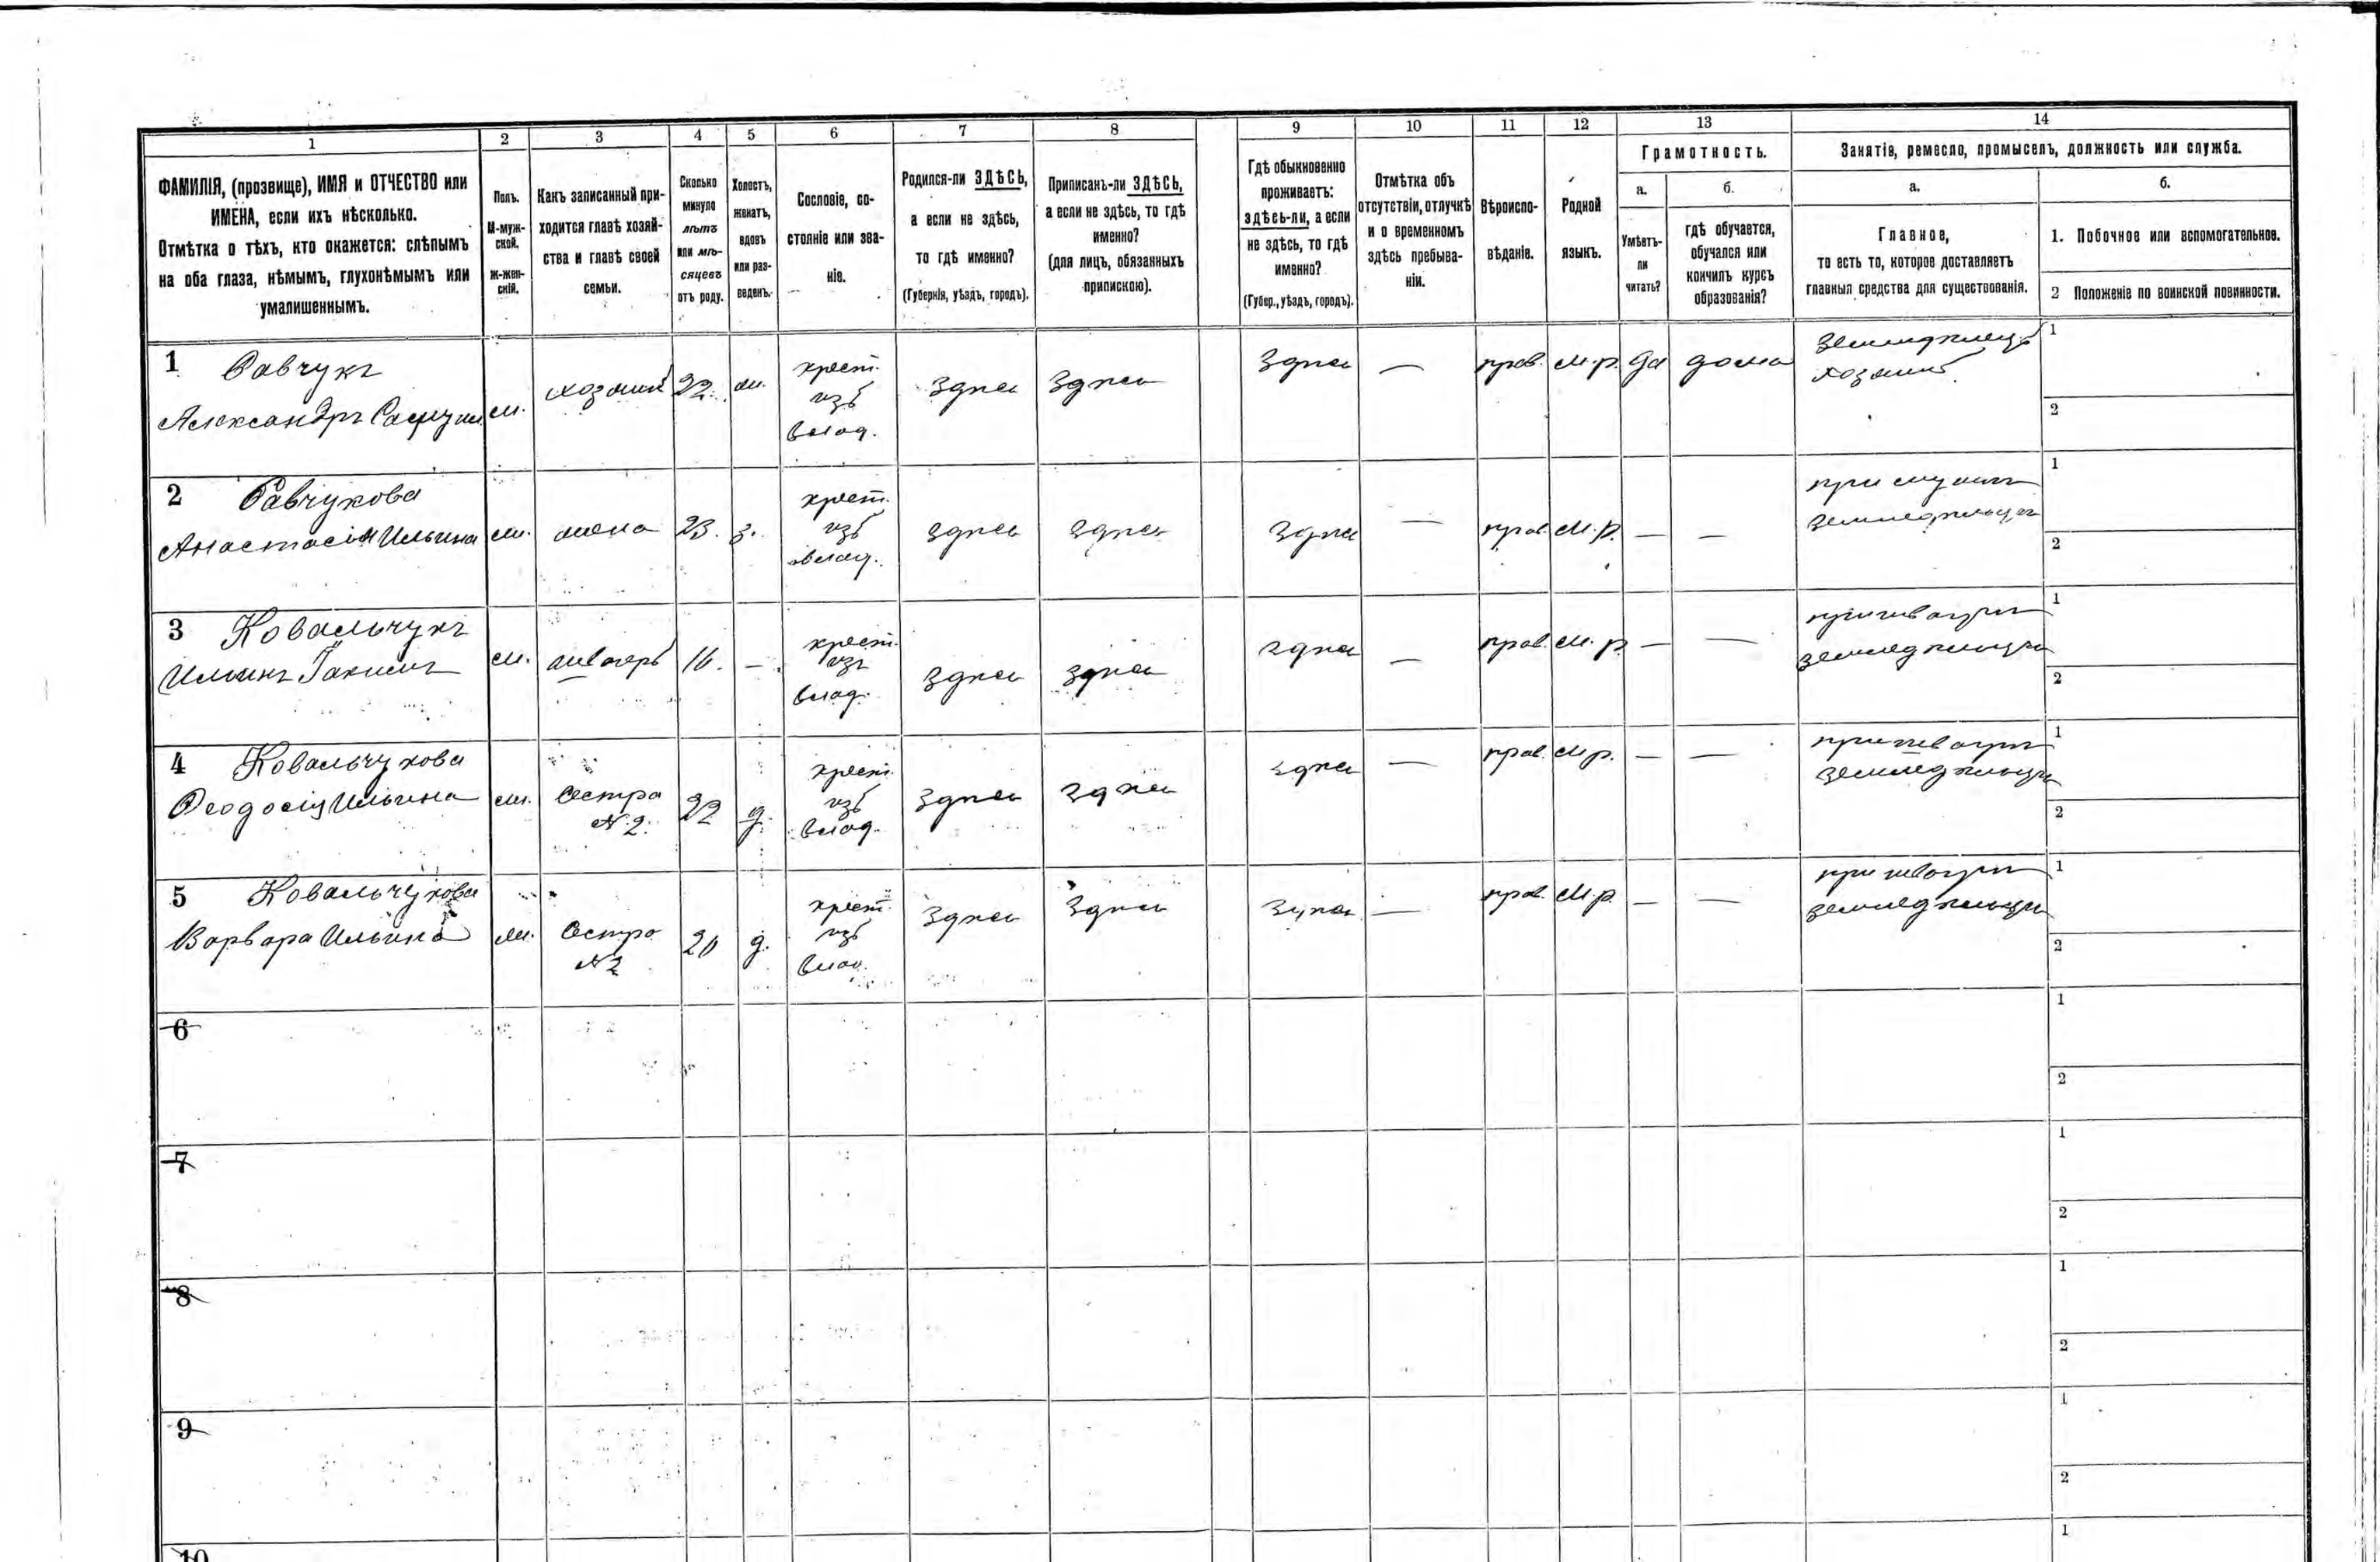 1 2 3 4 5 6 7 8 9 10 11 12 13 14
ФАМИЛІЯ, (прозвище), ИМЯ и ОТЧЕСТВО или
ИМЕНА, если ихъ нѣсколько.
Отмѣтка о тѣхъ, кто окажется: слѣпымъ
на оба глаза, нѣмымъ, глухонѣмымъ или
умалишеннымъ.
Полъ.
М-муж-
ской.
Ж-жен-
скій.
Какъ записанный при-
ходится главѣ хозяй-
ства и главѣ своей
семьи.
Сколько
минуло
лѣтъ
или мѣ-
сяцевъ
отъ роду.
Холостъ,
женатъ,
вдовъ
или раз-
веденъ.
Сословіе, со-
стояніе или зва-
ніе.
Родился-ли ЗДѢСЬ,
а если не здѣсь,
то гдѣ именно?
(Губернія, уѣздъ, городъ).
Приписанъ-ли ЗДѢСЬ,
а если не здѣсь, то гдѣ
именно?
(для лицъ, обязанныхъ
припискою).
Гдѣ обыкновенно
проживаетъ:
здѣсь-ли, а если
не здѣсь, то гдѣ
именно?
(Губер., уѣздъ, городъ).
Отмѣтка объ
отсутствіи, отлучкѣ
и о временномъ
здѣсь пребыва-
ніи.
Вѣроиспо-
вѣданіе.
Родной
языкъ.
Грамотность.
а.
Умѣетъ-
ли
читать?
б.
гдѣ обучается,
обучался или
кончилъ курсъ
образованія?
Занятія, ремесло, промыселъ, должность или служба.
а.
Главное,
то есть то, которое доставляетъ
главныя средства для существованія.
б.
1. Побочное или вспомогательное.
2 Положеніе по воинской повинности.
1 Савчукъ
Александръ
м. хозяинъ 22. ж.
крест.
изъ
влад.
здѣсь здѣсь здѣсь — прав. м.р. да дома
земледѣлецъ
хозяинъ
1
2
2 Савчукова
Анастасія Ильина
ж. жена 23. з.
крест.
изъ
влад.
здѣсь здѣсь здѣсь — прав. м.р. — —
при мужѣ
земледѣльцѣ
1
2
3 Ковальчукъ
м. швагеръ 16. —
крест.
изъ
влад.
здѣсь здѣсь здѣсь — прав. м.р. — —
при швагрѣ
земледѣльцѣ
1
2
4 Ковальчукова
Ѳеодосія Ильина
ж.
Сестра
№ 2.
22 д.
крест.
изъ
влад.
здѣсь здѣсь здѣсь — прав. м.р. — —
при швагрѣ
земледѣльцѣ
1
2
5 Ковальчукова
Варвара Ильина
ж.
Сестра
№ 2
20 д.
крест.
изъ
влад.
здѣсь здѣсь здѣсь — прав. м.р. — —
при швагрѣ
земледѣльцѣ
1
2
6
1
2
7
1
2
8
1
2
9
1
2
10
1